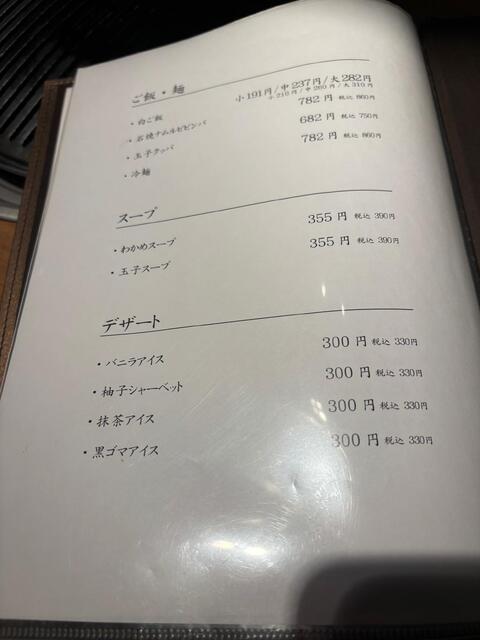 ご飯・麺
・白ご飯 小191円/中237円/大282円
小210円/中260円/大310円
・石焼ナムルビビンバ 782円 税込 860円
・玉子クッパ 682円 税込 750円
・冷麺 782円 税込 860円
スープ
・わかめスープ 355円 税込 390円
・玉子スープ 355円 税込 390円
デザート
・バニラアイス 300円 税込 330円
・柚子シャーベット 300円 税込 330円
・抹茶アイス 300円 税込 330円
・黒ゴマアイス 300円 税込 330円